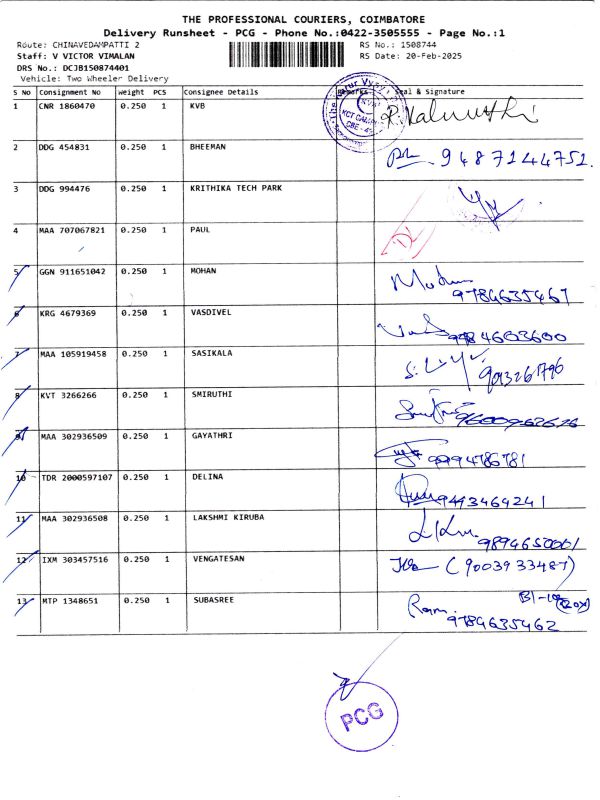 THE PROFESSIONAL COURIERS, COIMBATORE
Delivery Runsheet - PCG - Phone No.:0422-3505555 - Page No.:1
Route: CHINAVEDAMPATTI 2 RS No.: 1508744
Staff: V VICTOR VIMALAN RS Date: 20-Feb-2025
DRS No.: DCJB150874401
Vehicle: Two Wheeler Delivery
S No Consignment No weight PCS Consignee Details Remarks Seal & Signature
1 CNR 1860470 0.250 1 KVB
2 DDG 454831 0.250 1 BHEEMAN 9487144752
3 DDG 994476 0.250 1 KRITHIKA TECH PARK
4 MAA 707067821 0.250 1 PAUL
5 GGN 911651042 0.250 1 MOHAN 9784635467
6 KRG 4679369 0.250 1 VASDIVEL
7 MAA 105919458 0.250 1 SASIKALA
8 KVT 3266266 0.250 1 SMIRUTHI
9 MAA 302936509 0.250 1 GAYATHRI
10 TDR 2000597107 0.250 1 DELINA 9493464241
11 MAA 302936508 0.250 1 LAKSHMI KIRUBA 9894650001
12 IXM 303457516 0.250 1 VENGATESAN (9003933487)
13 MTP 1348651 0.250 1 SUBASREE Ram 9784635462
PCG